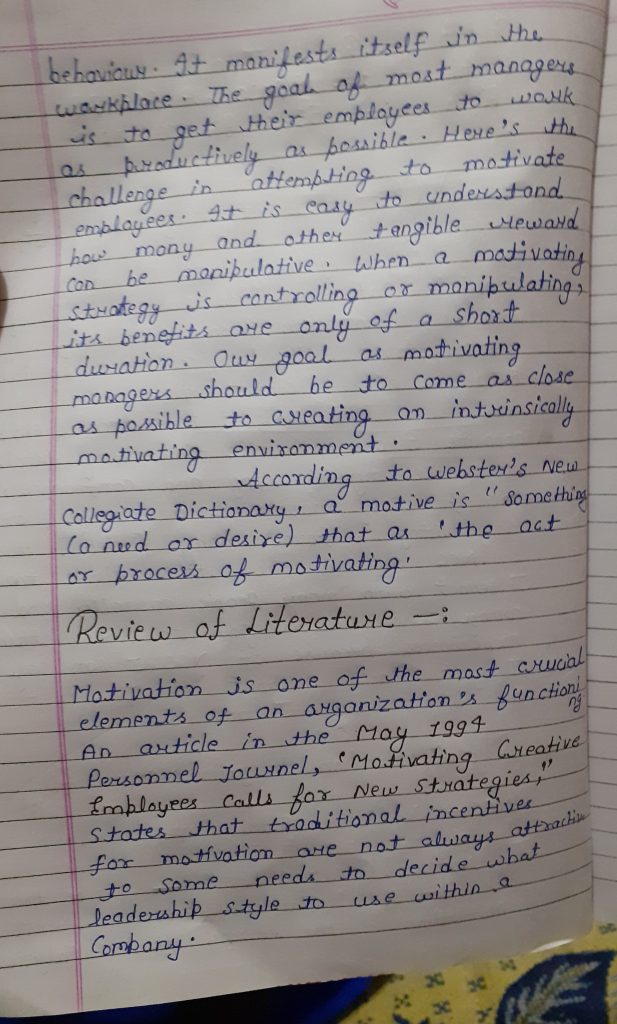 behaviour. It manifests itself in the
workplace. The goal of most managers
is to get their employees to work
as productively as possible. Here's the
challenge in attempting to motivate
employees. It is easy to understand
how many and other tangible reward
can be manipulative. When a motivating
strategy is controlling or manipulating,
its benefits are only of a short
duration. Our goal as motivating
managers should be to come as close
as possible to creating an intrinsically
motivating environment.
According to webster's New
Collegiate Dictionary, a motive is "something
(a need or desire) that as 'the act
or process of motivating'
Review of Literature —:
Motivation is one of the most crucial
elements of an organization's functioning
An article in the May 1994
Personnel Journel, "Motivating Creative
Employees Calls for New Strategies,"
States that traditional incentives
for motivation are not always attractive
to some needs to decide what
leadership style to use within a
Company.